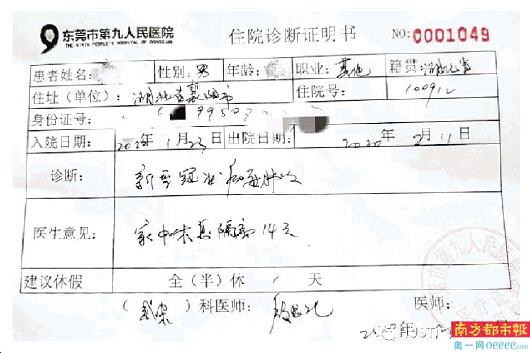 东莞市第九人民医院
THE NINTH PEOPLE'S HOSPITAL OF DONGGUAN
住院诊断证明书 NO:0001049
患者姓名: 性别: 男 年龄: 职业: 其他 籍贯: 湖北
住址(单位): 湖北省 市 住院号: 10091
身份证号 199503
入院日期: 2020年1月23 出院日期: 2020年2月11日
诊断: 新型冠状病毒肺炎
医生意见: 家中休息隔离14天
建议休假 全(半)休 天
( )科医师: 医师:
南方都市报
奥一网oeeee.com